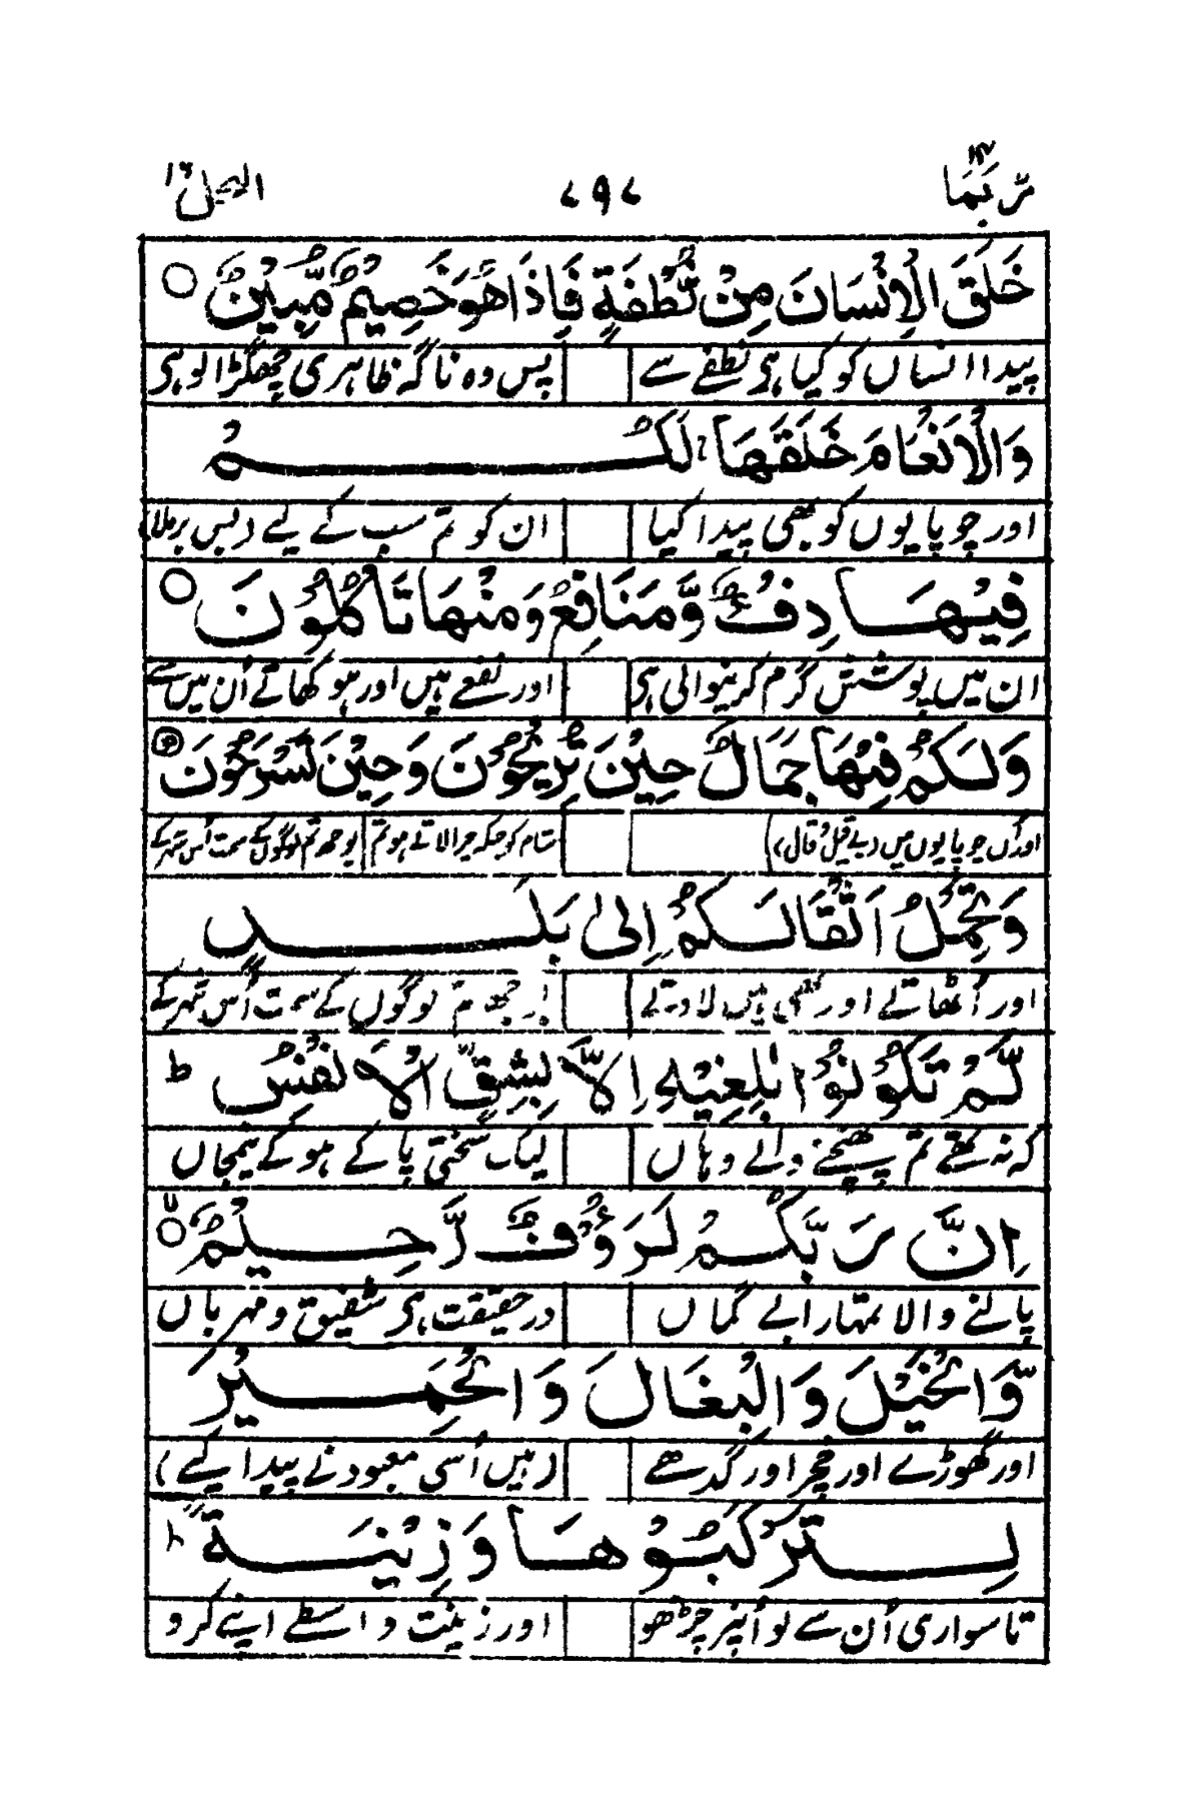 ربما ۱۴ ۷۹۷ النحل ۱۶
خَلَقَ الْاِنْسَانَ مِنْ نُّطْفَةٍ فَاِذَا هُوَ خَصِيْمٌ مُّبِيْنٌ ○
پیدا انساں کو کیا ہی نطفے سے پس وہ ناگہ ظاہری جھگڑالو ہی
وَالْاَنْعَامَ خَلَقَهَا ۚ لَكُمْ
اور چوپایوں کو بھی پیدا کیا ان کو تم سب کے لیے دلبس برملا
فِيْهَا دِفْءٌ وَّمَنَافِعُ وَمِنْهَا تَاْكُلُوْنَ ○
ان میں پوشش گرم کرنیوالی ہی اور نفعے ہیں اور ہو کھاتے اُن میں سے
وَلَكُمْ فِيْهَا جَمَالٌ حِيْنَ تُرِيْحُوْنَ وَحِيْنَ تَسْرَحُوْنَ
اور اُن چوپایوں میں شام کو جبکہ چرا لاتے ہو تم بوجھ تم لوگوں کے سمت اُس شہر کے
وَتَحْمِلُ اَثْقَالَكُمْ اِلٰى بَلَدٍ
اور اُٹھاتے اور بھی ہیں لادتے بوجھ تم لوگوں کے سمت اُس شہر کے
لَّمْ تَكُوْنُوْا بٰلِغِيْهِ اِلَّا بِشِقِّ الْاَنْفُسِ ط
کہ نہ تھے تم پہنچنے والے وہاں لیک سختی پا کے ہو کے نیمجاں
اِنَّ رَبَّكُمْ لَرَءُوْفٌ رَّحِيْمٌ ○
پالنے والا تمہارا بے گماں درحقیقت ہی شفیق و مہرباں
وَّالْخَيْلَ وَالْبِغَالَ وَالْحَمِيْرَ
اور گھوڑے اور خچر اور گدھے (ہیں اُسی معبود نے پیدا کیے)
لِتَرْكَبُوْهَا وَزِيْنَةً ط
تا سواری اُن سے لو اُنپر چڑھو اور زینت واسطے اپنے کرو